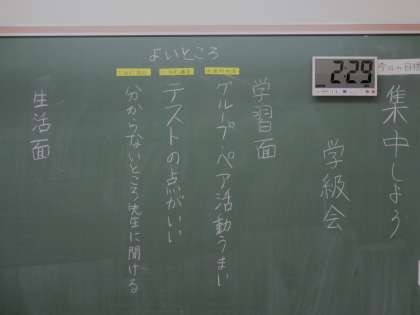 今日の目標
集中しよう
2:29
学級会
よいところ
学習面
グループ・ペア活動うまい
テストの点がいい
分からないところ先生に聞ける
生活面